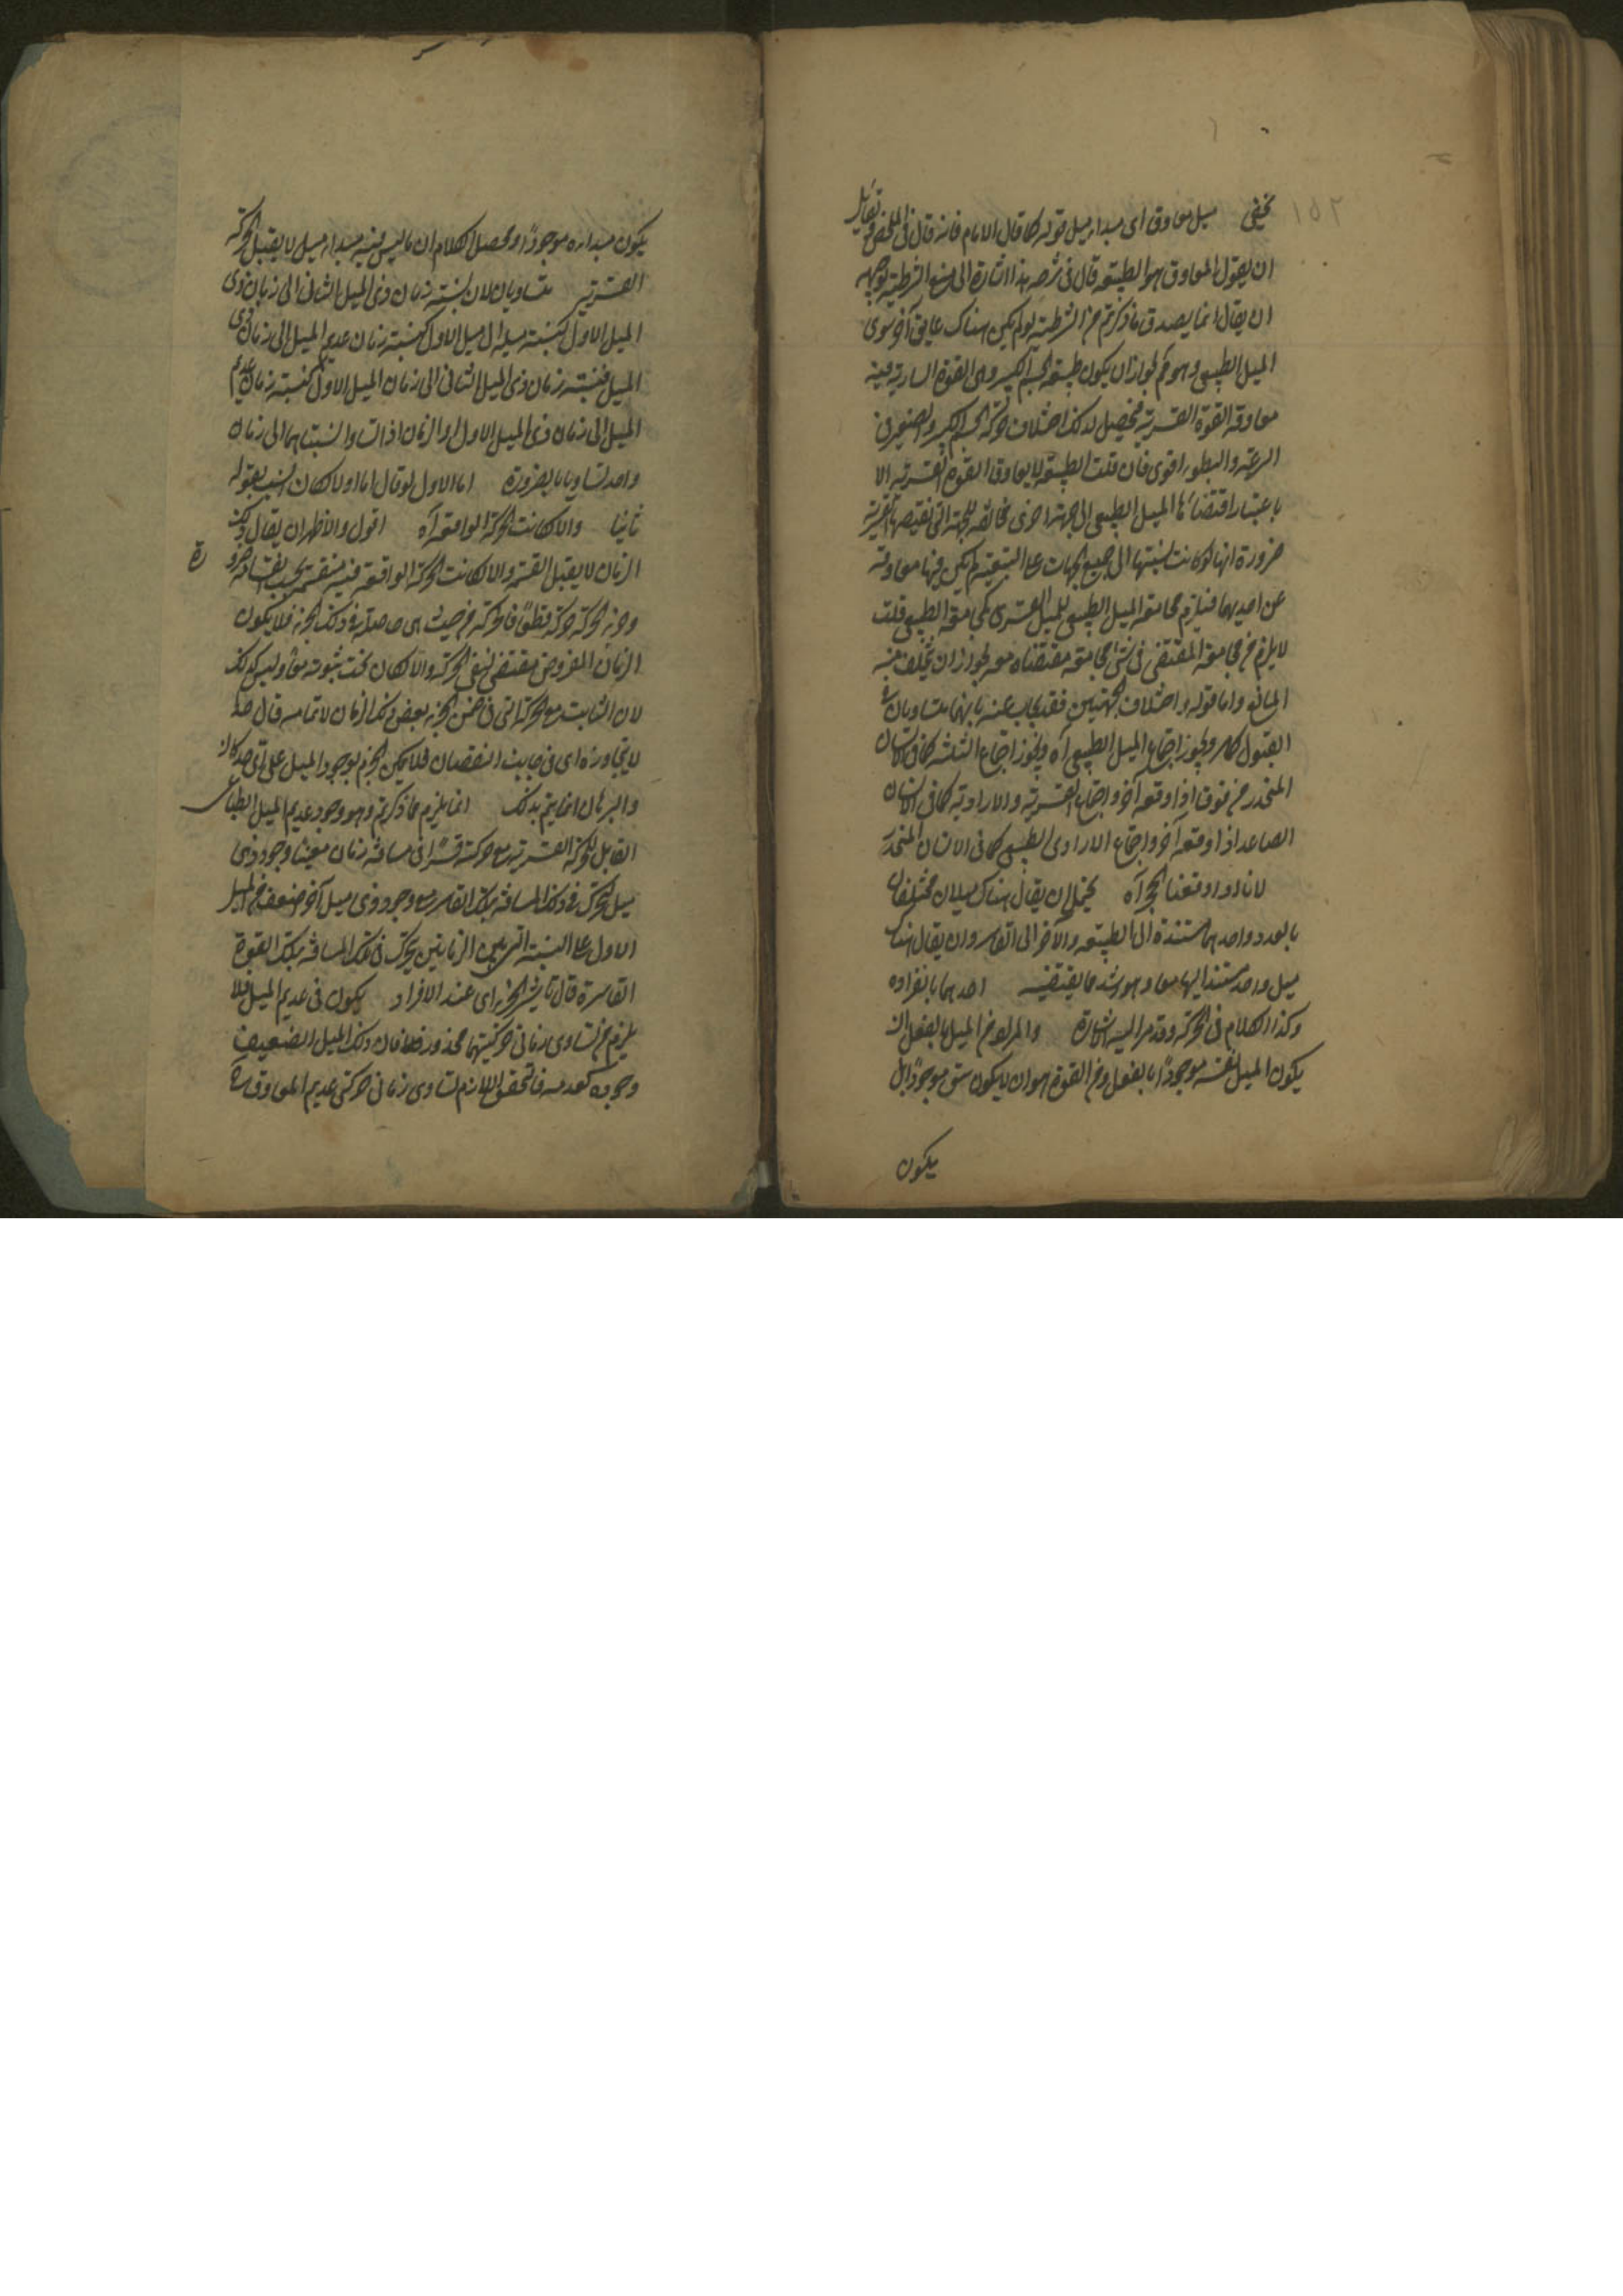 ١٥٢
يخفى ميل معاوق اى مبدا، ميل قوله كما قال الامام فانه قال فى الملخص ولقائل
ان يقول المعاوق هو الطبيعة قال فى شرحه هذا اشارة الى منع الشرطية توجيهه
ان يقال انما يصدق ما ذكرتم من الشرطية لو لم يكن هناك عايق آخر سوى
الميل الطبيعى وهو مم لجواز ان يكون طبيعة الجسم الكبير وهى القوة السارية فيه
معاوقة القوة القسرية فيحصل لذلك اختلاف حركة الجسم الكبير والصغير فى
السرعة والبطوء اقوى فان قلت الطبيعة لا يعاوق القوة القسرية الا
باعتبار اقتضائها الميل الطبيعى الى جهة اخرى مخالفة للجهة التى تقتضيها القسرية
ضرورة انها لو كانت نسبتها الى جميع الجهات على السوية لم يكن فيها معاوقة
عن احديهما فيلزم مجامعة الميل الطبيعى للميل القسرى لمجامعة الطبيعى قلت
لا يلزم من مجامعة المقتضى فى شئ مجامعة مقتضاه معه لجواز ان يتخلف عنه
المانع واما قوله واختلاف الجهتين فقد يجاب عنه بانهما متساويان فى
القبول كامر ويجوز اجتماع الميل الطبيعى آه ويجوز اجتماع الثلثة كما فى الانسان
المنحدر من فوق اذا وقعه آخر واجتماع القسرية والارادية كما فى الانسان
الصاعد اذا وقعه آخر واجتماع الارادى الطبيعى كما فى الانسان المنحدر
لانا لو اوقفنا الحجر آه يحتمل ان يقال هناك ميلان مختلفان
بالعدد واحدهما مستندة الى الطبيعة والآخر الى القاسر وان يقال هناك
ميل واحد مستند اليهما معا وهو اشد مما يقتضيه احدهما بانفراده
وكذا الكلام فى الحركة وقد مر اليه الاشارة والمراد من الميل بالفعل ان
يكون الميل نفسه موجودًا بالفعل ومن القوة هو ان لا يكون هو موجودًا بل
يكون
يكون مبداه موجودًا ومحصل الكلام ان ما ليس فيه مبدا، ميل لا يقبل الحركة
القسرية متساويان لان نسبة زمان ذى الميل الثانى الى زمان ذى
الميل الاول كنسبة ميله الى ميل الاول كنسبة زمان عديم الميل الى زمان ذى
الميل فنسبة زمان ذى الميل الثانى الى زمان الميل الاول كنسبة زمان عديم
الميل الى زمان ذى الميل الاول والزمان اذا تساو النسبتاهما الى زمان
واحد تساويا بالضرورة اما الاول لو قال اما اولا لكان انسب بقوله
ثانيا والا لكانت الحركة الواقعة آه اقول والاظهر ان يقال ذلك
الزمان لا يقبل القسمة والا لكانت الحركة الواقعة فيه منقسمة بحسب انقسامه
وجزء الحركة حركة قطعًا فالحركة من حيث هى حاصلة فى ذلك الجزء فلا يكون
الزمان المفروض مقتضى لنفس الحركة والا لكان تحت ثبوته معًا وليس كذلك
لان الثابت مع الحركة التى فى ضمن الجزء بعض ذلك الزمان لا تمامه قال
لا يتجاوزه اى فى جانب النقصان فلا يمكن الجزم بوجود الميل على اى حد كان
والبرهان انما يتم بذلك انما يلزم مما ذكرتم وهو وجود عديم الميل الطباعى
القابل للحركة القسرية مع حركته قسرًا فى مسافة زمان معينًا وجود ذى
ميل يتحرك فى تلك المسافة بتلك القاسر مع وجود ذى ميل آخر اضعف من الميل
الاول على النسبة التى بين الزمانين يتحرك فى تلك المسافة بتلك القوة
القاسرة قال تاثير الجزء اى عند الافراد يكون فى عديم الميل فلا
يلزم من تساوى زمانى حركتيهما محذور فلا فان ذلك الميل الضعيف
وجوده كعدمه فالمحقق اللازم تساوى زمانى حركتى عديم المعاوق